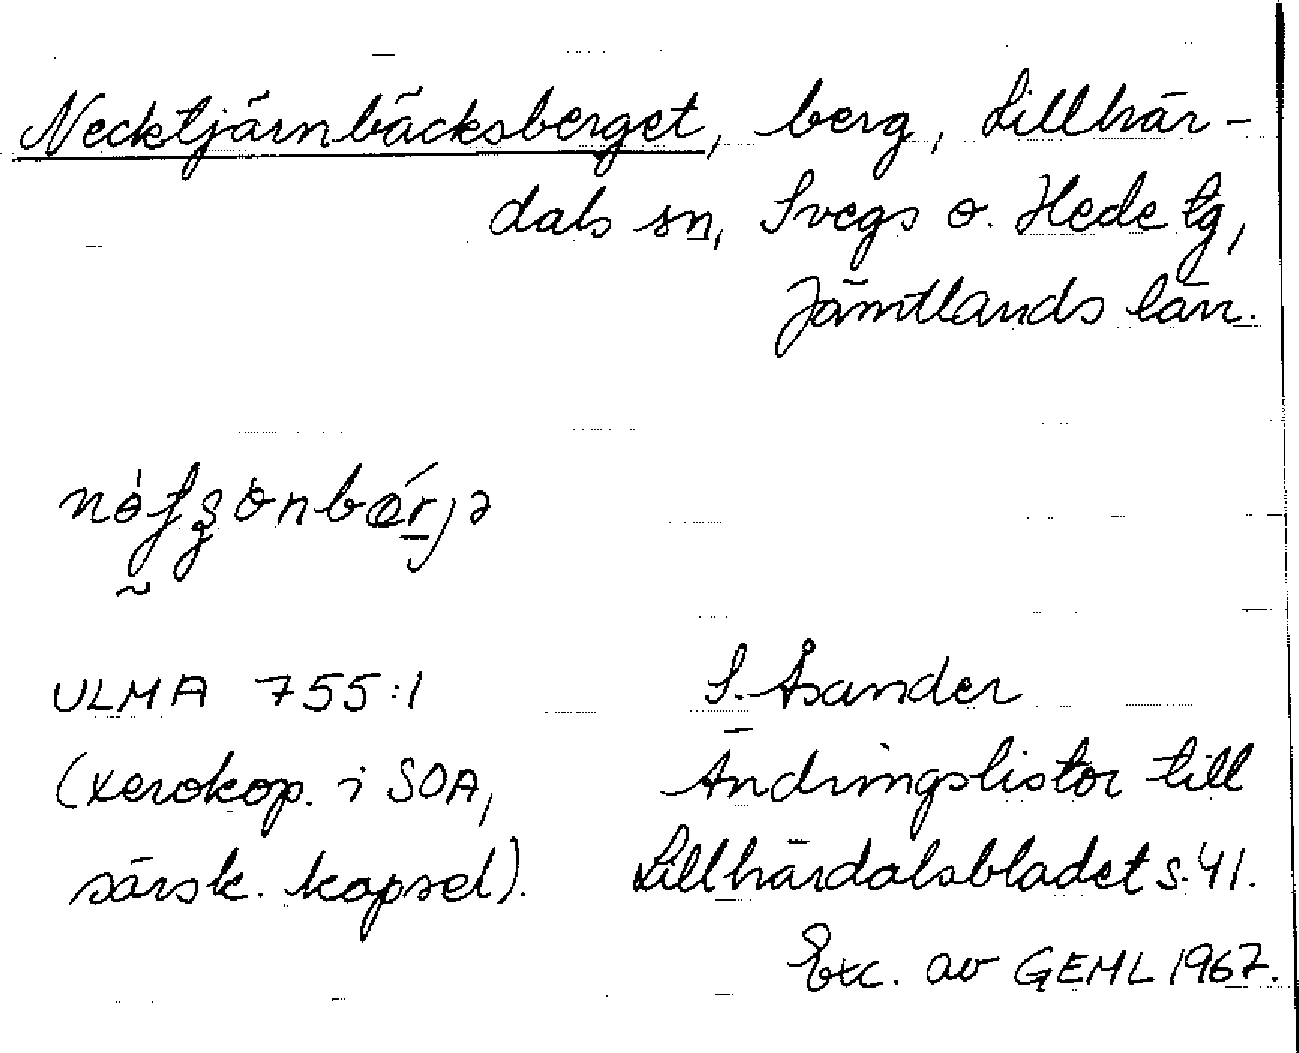 Necktjärnbäcksberget, berg, Lillhär-
dals sn, Svegs o. Hede tg,
Jämtlands län.
ULMA 755:1
(xerokop. i SOA,
särsk. kapsel).
S. Åsander
Ändringslistor till
Lillhärdalsbladet s. 41.
Exc. av GEML 1967.